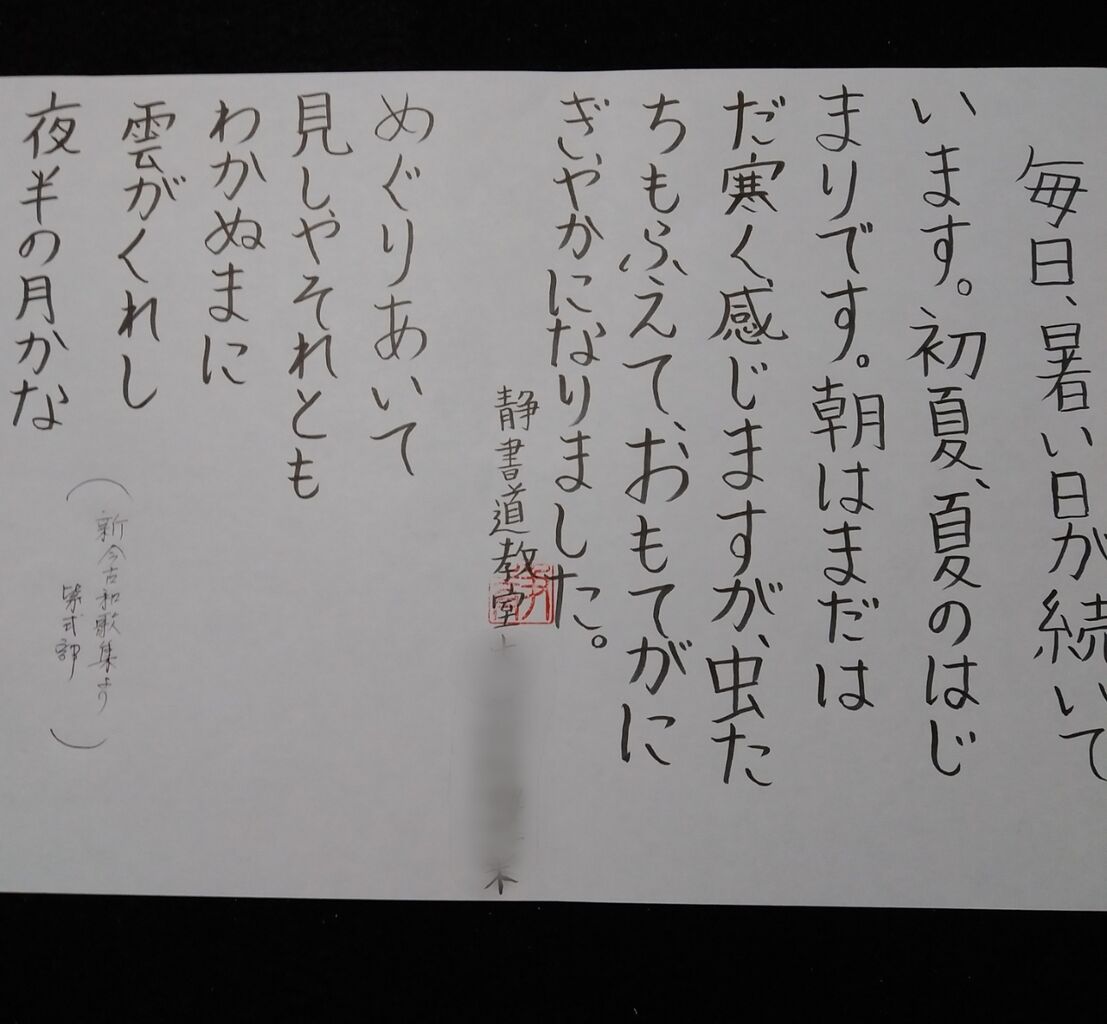 毎日、暑い日が続いて
います。初夏、夏のはじ
まりです。朝はまだは
だ寒く、感じますが、虫た
ちもふえて、おもてがに
ぎやかになりました。
静書道教室
めぐりあいて
見しやそれとも
わかぬまに
雲がくれし
夜半の月かな
(新今古和歌集より
紫式部)